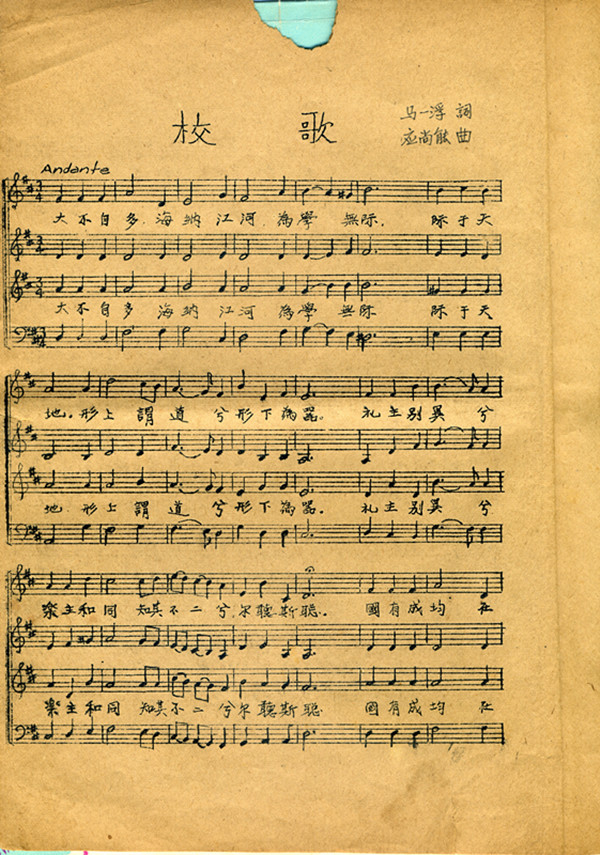 校 歌
马一浮 詞
应尚能 曲
Andante
大不自多 海納江河 為學 無際. 際于天
大不自多 海納江河 為學 無際 際于天
地. 形上 謂道 兮形下為器. 礼主别異兮
地. 形上 謂道 兮形下為器. 礼主别異兮
樂主和同 知其不二兮尔聽斯聪. 國有成均 在
樂主和同 知其不二兮尔聽斯聪 國有成均 在